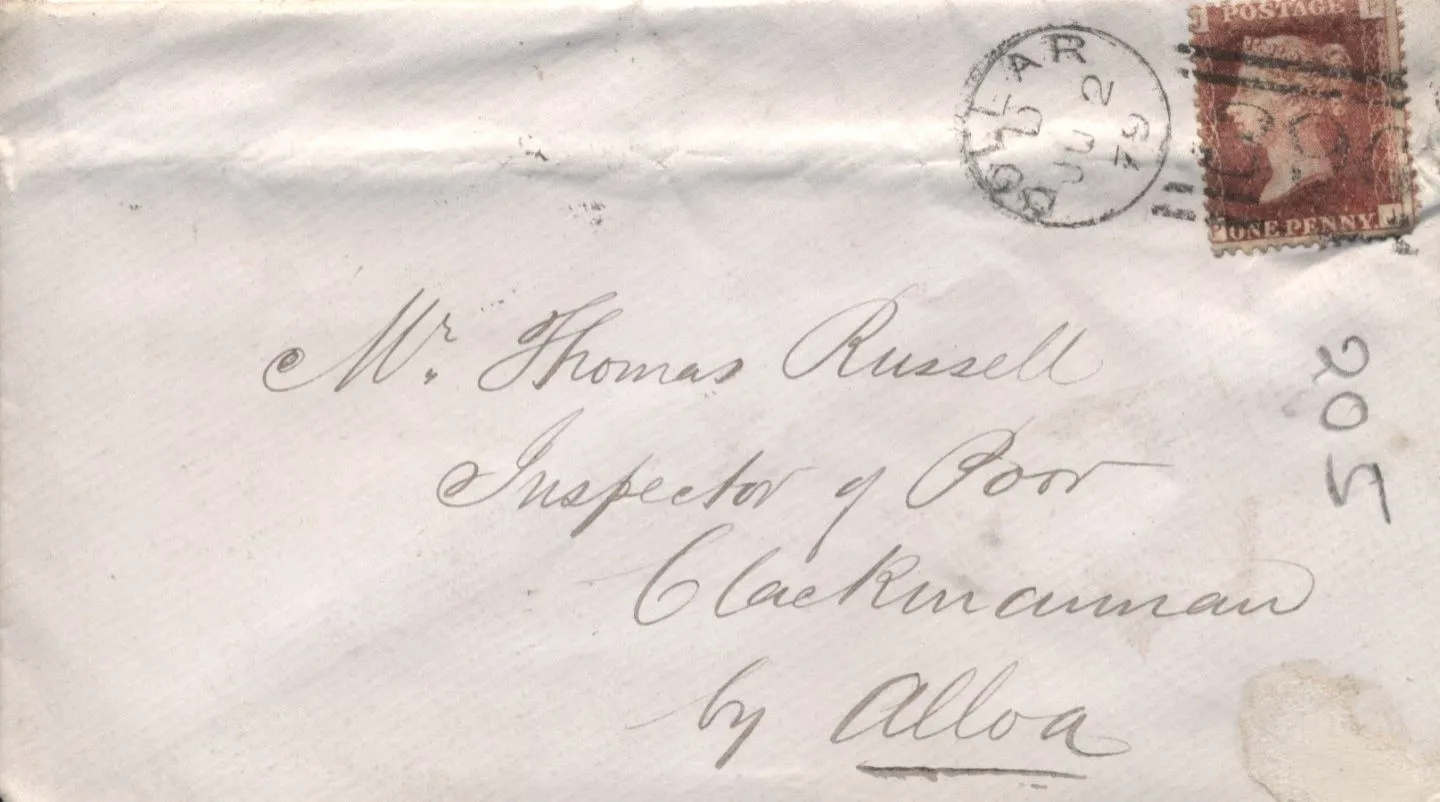 DOLLAR
D
JU 2
79
POSTAGE
J P
ONE PENNY
P J
Mr. Thomas Russell
Inspector of Poor
Clackmannan
by Alloa
502